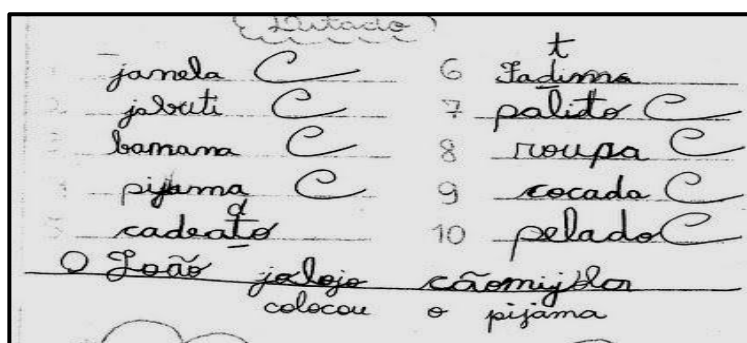 Ditado
janela C
jabuti C
banana C
pijama C
d
cadeato
t
6 Fadima
7 palito C
8 roupa C
9 cocada C
10 pelado C
O João jalojo
colocou o pijama